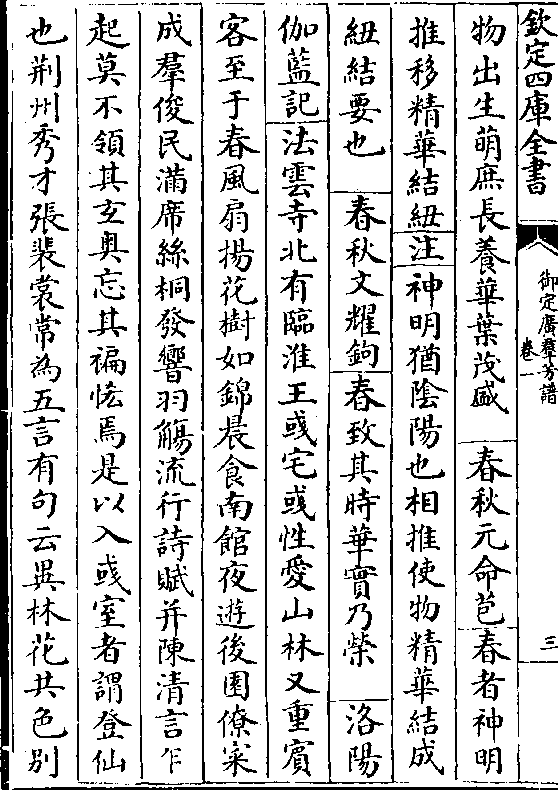 欽定四庫全書
御定廣羣芳譜
卷一
三
物出生萌庶長養華葉茂盛 春秋元命苞春者神明
推移精華結紐注神明猶陰陽也相推使物精華結成
紐結要也 春秋文耀鉤春致其時華實乃榮 洛陽
伽藍記法雲寺北有臨淮王彧宅彧性愛山林又重賓
客至于春風扇揚花樹如錦晨食南館夜遊後園僚寀
成羣俊民滿席絲桐發響羽觴流行詩賦并陳清言乍
起莫不領其玄奧忘其褊恡焉是以入彧室者謂登仙
也荆州秀才張裴裳常為五言有句云異林花共色别